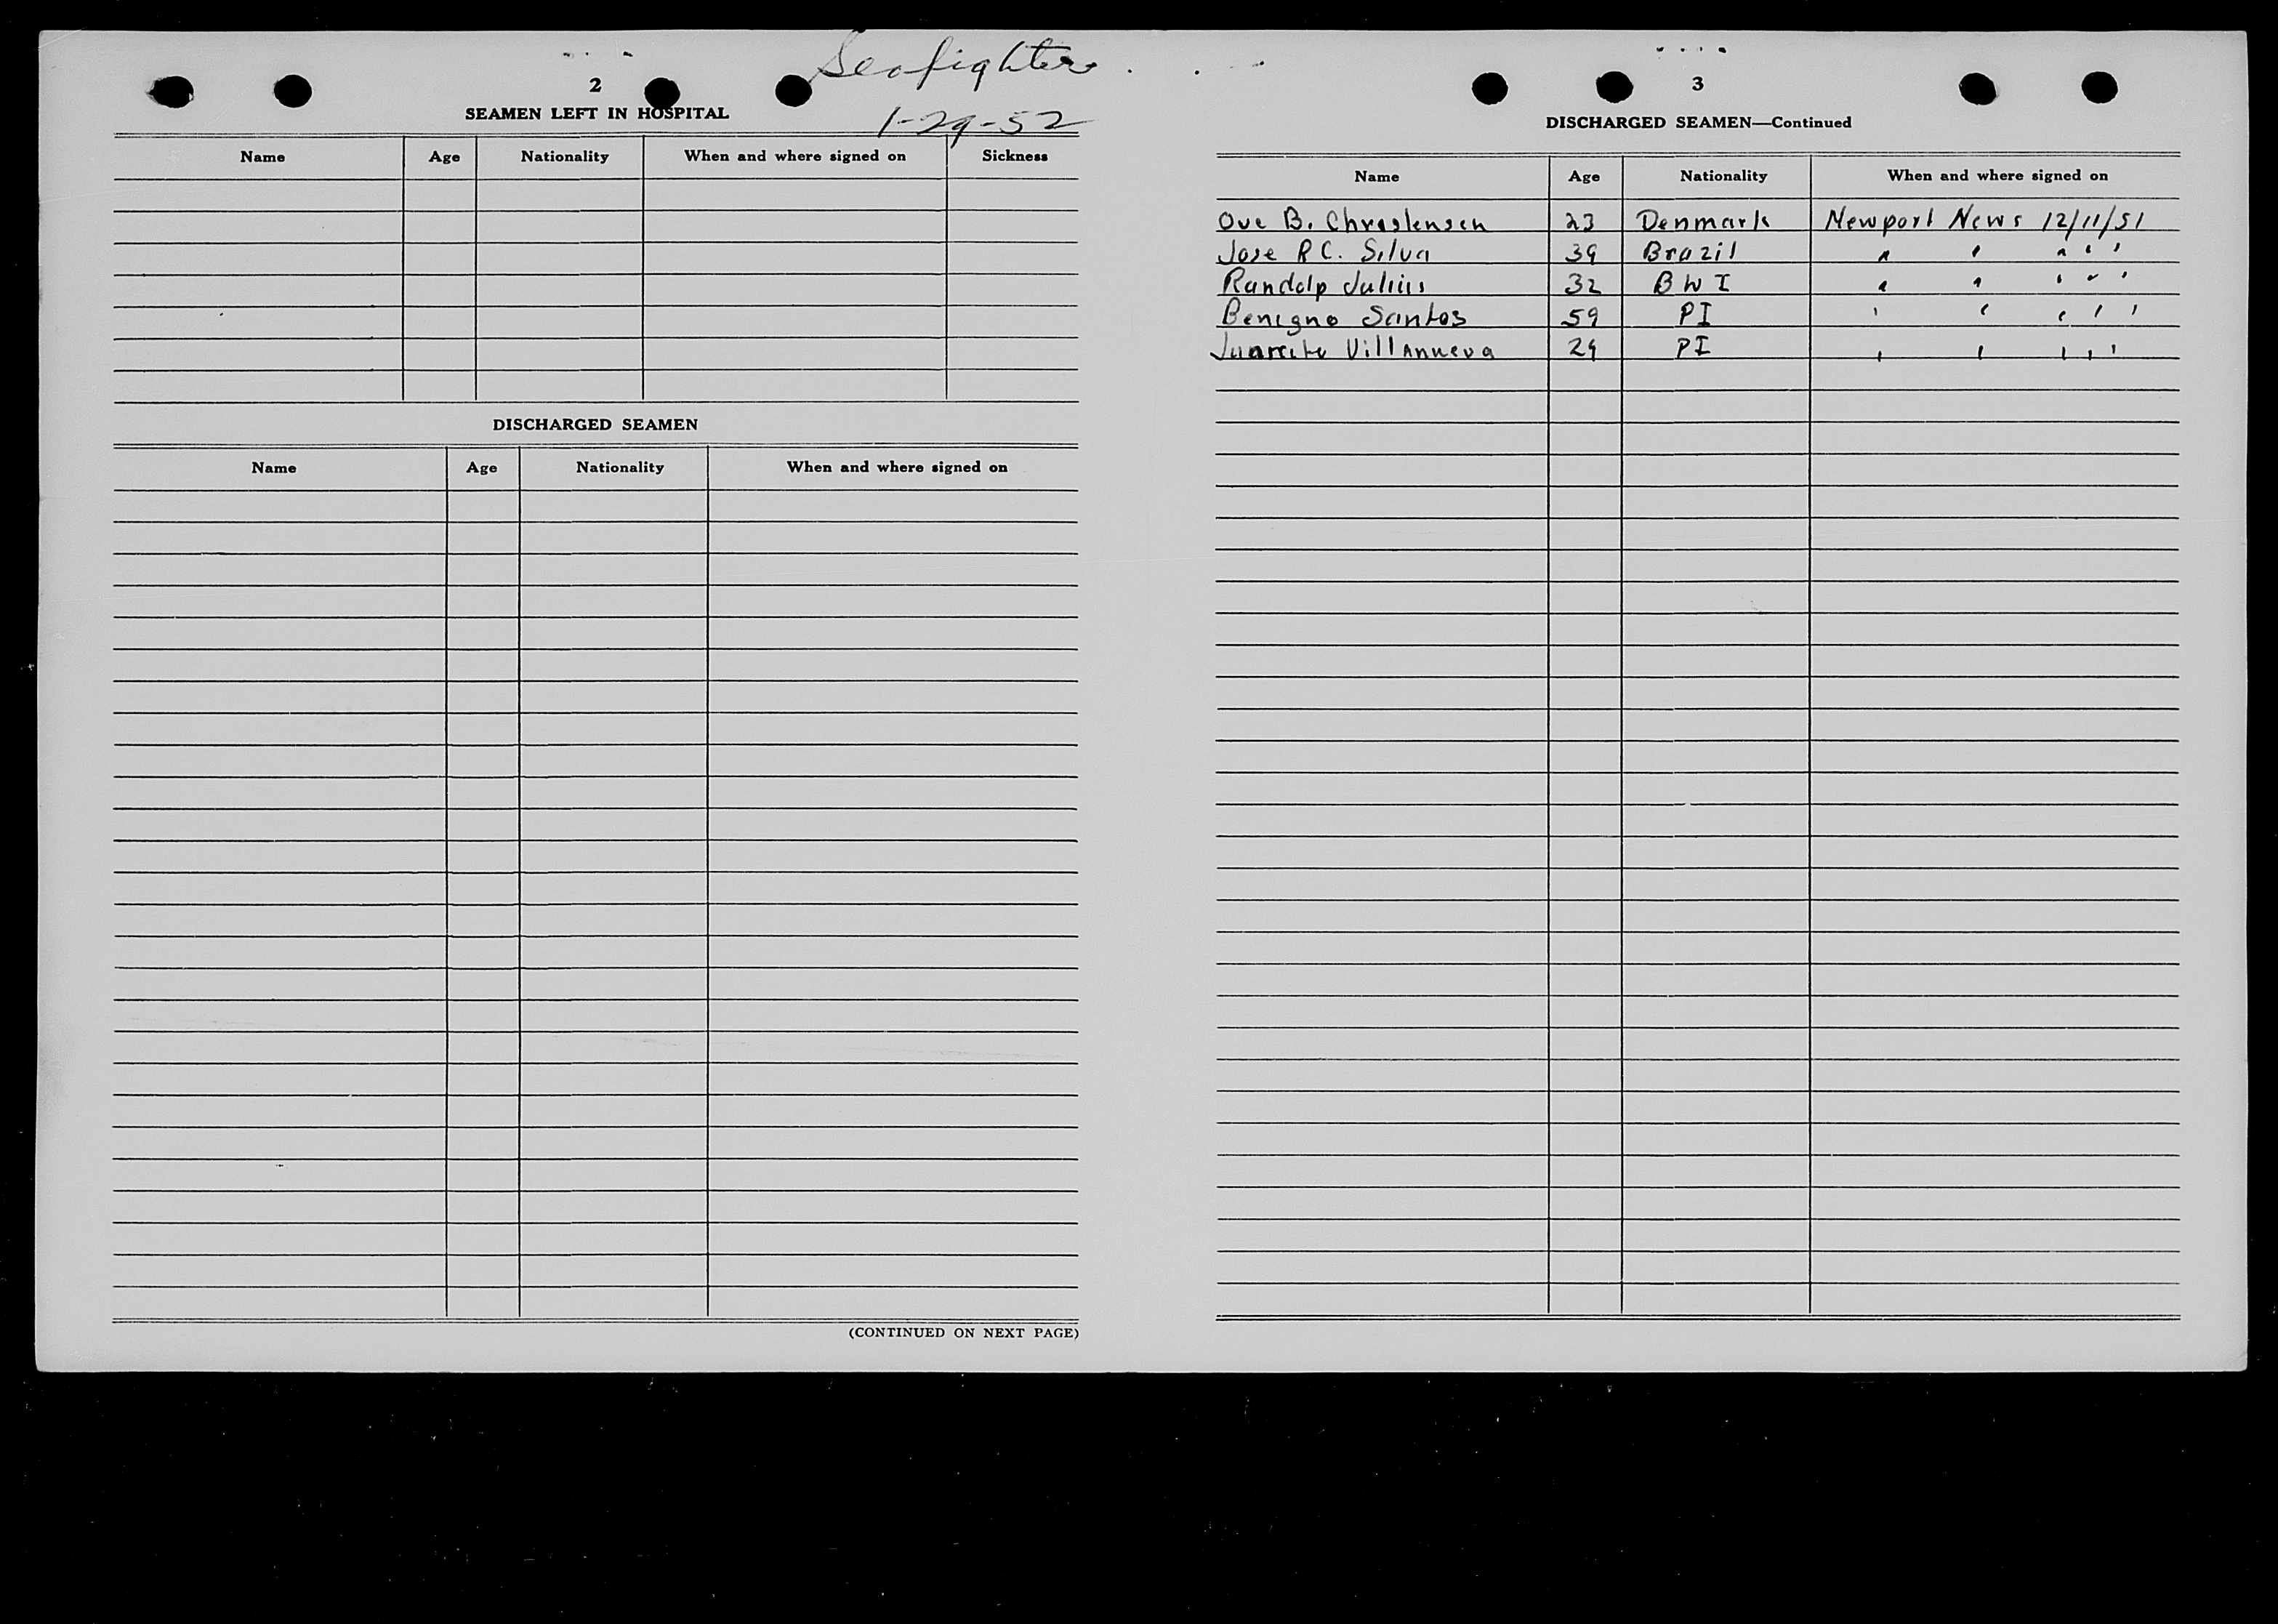 Seafighter
2
SEAMEN LEFT IN HOSPITAL
1-29-52
Name Age Nationality When and where signed on Sickness
DISCHARGED SEAMEN
Name Age Nationality When and where signed on
(CONTINUED ON NEXT PAGE)
3
DISCHARGED SEAMEN—Continued
Name Age Nationality When and where signed on
Ove B. Christensen 23 Denmark Newport News 12/11/51
Jose R C. Silva 39 Brazil " " " " "
Randolp Julius 32 B W I " " " " "
Benigno Santos 59 PI " " " " "
Villanueva 29 PI " " " " "